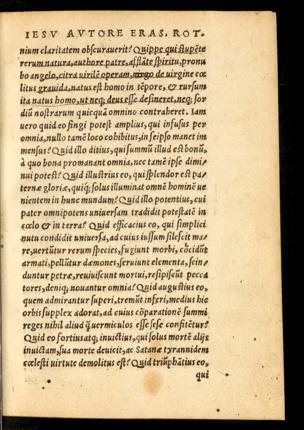 IESV AVTORE ERAS. ROT.
nium claritatem obscurauerit? Quippe qui stupēte
rerum natura, authore patre, afflāte spiritu, pronu
bo angelo, citra virilē operam, virgo de uirgine cœ
litus grauida, natus est homo in tēpore, & rursum
ita natus homo, ut neq; deus esse desineret, neq; sor
diū nostrarum quicquā omnino contraheret. Iam
uero quid eo fingi potest amplius, qui infusus per
omnia, nullo tamē loco cohibitus, in seipso manet im
mensus? Quid illo ditius, qui summū illud est bonū,
à quo bona promanant omnia, nec tamē ipse dimi/
nui potest? Quid illustrius eo, qui splendor est pa/
ternæ gloriæ, quiq; solus illuminat omnē hominē ue
nientem in hunc mundum? Quid illo potentius, cui
pater omnipotens uniuersam tradidit potestatē in
cœlo & in terra? Quid efficacius eo, qui simplici
nutu condidit uniuersa, ad cuius iussum silescit ma
re, uertūtur rerum species, fugiunt morbi, cōcidūt
armati, pelluntur dæmones, seruiunt elementa, scin/
duntur petræ, reuiuiscunt mortui, resipiscūt pecca
tores, deniq; nouantur omnia? Quid augustius eo,
quem admirantur superi, tremūt inferi, medius hic
orbis supplex adorat, ad cuius cōparationē summi
reges nihil aliud q̄ uermiculos esse sese confitētur?
Quid eo fortius atq; inuictius, qui solus mortē aliis
inuictam, sua morte deuicit, ac Satanæ tyrannidem
cœlesti uirtute demolitus est? Quid triūphātius eo,
qui